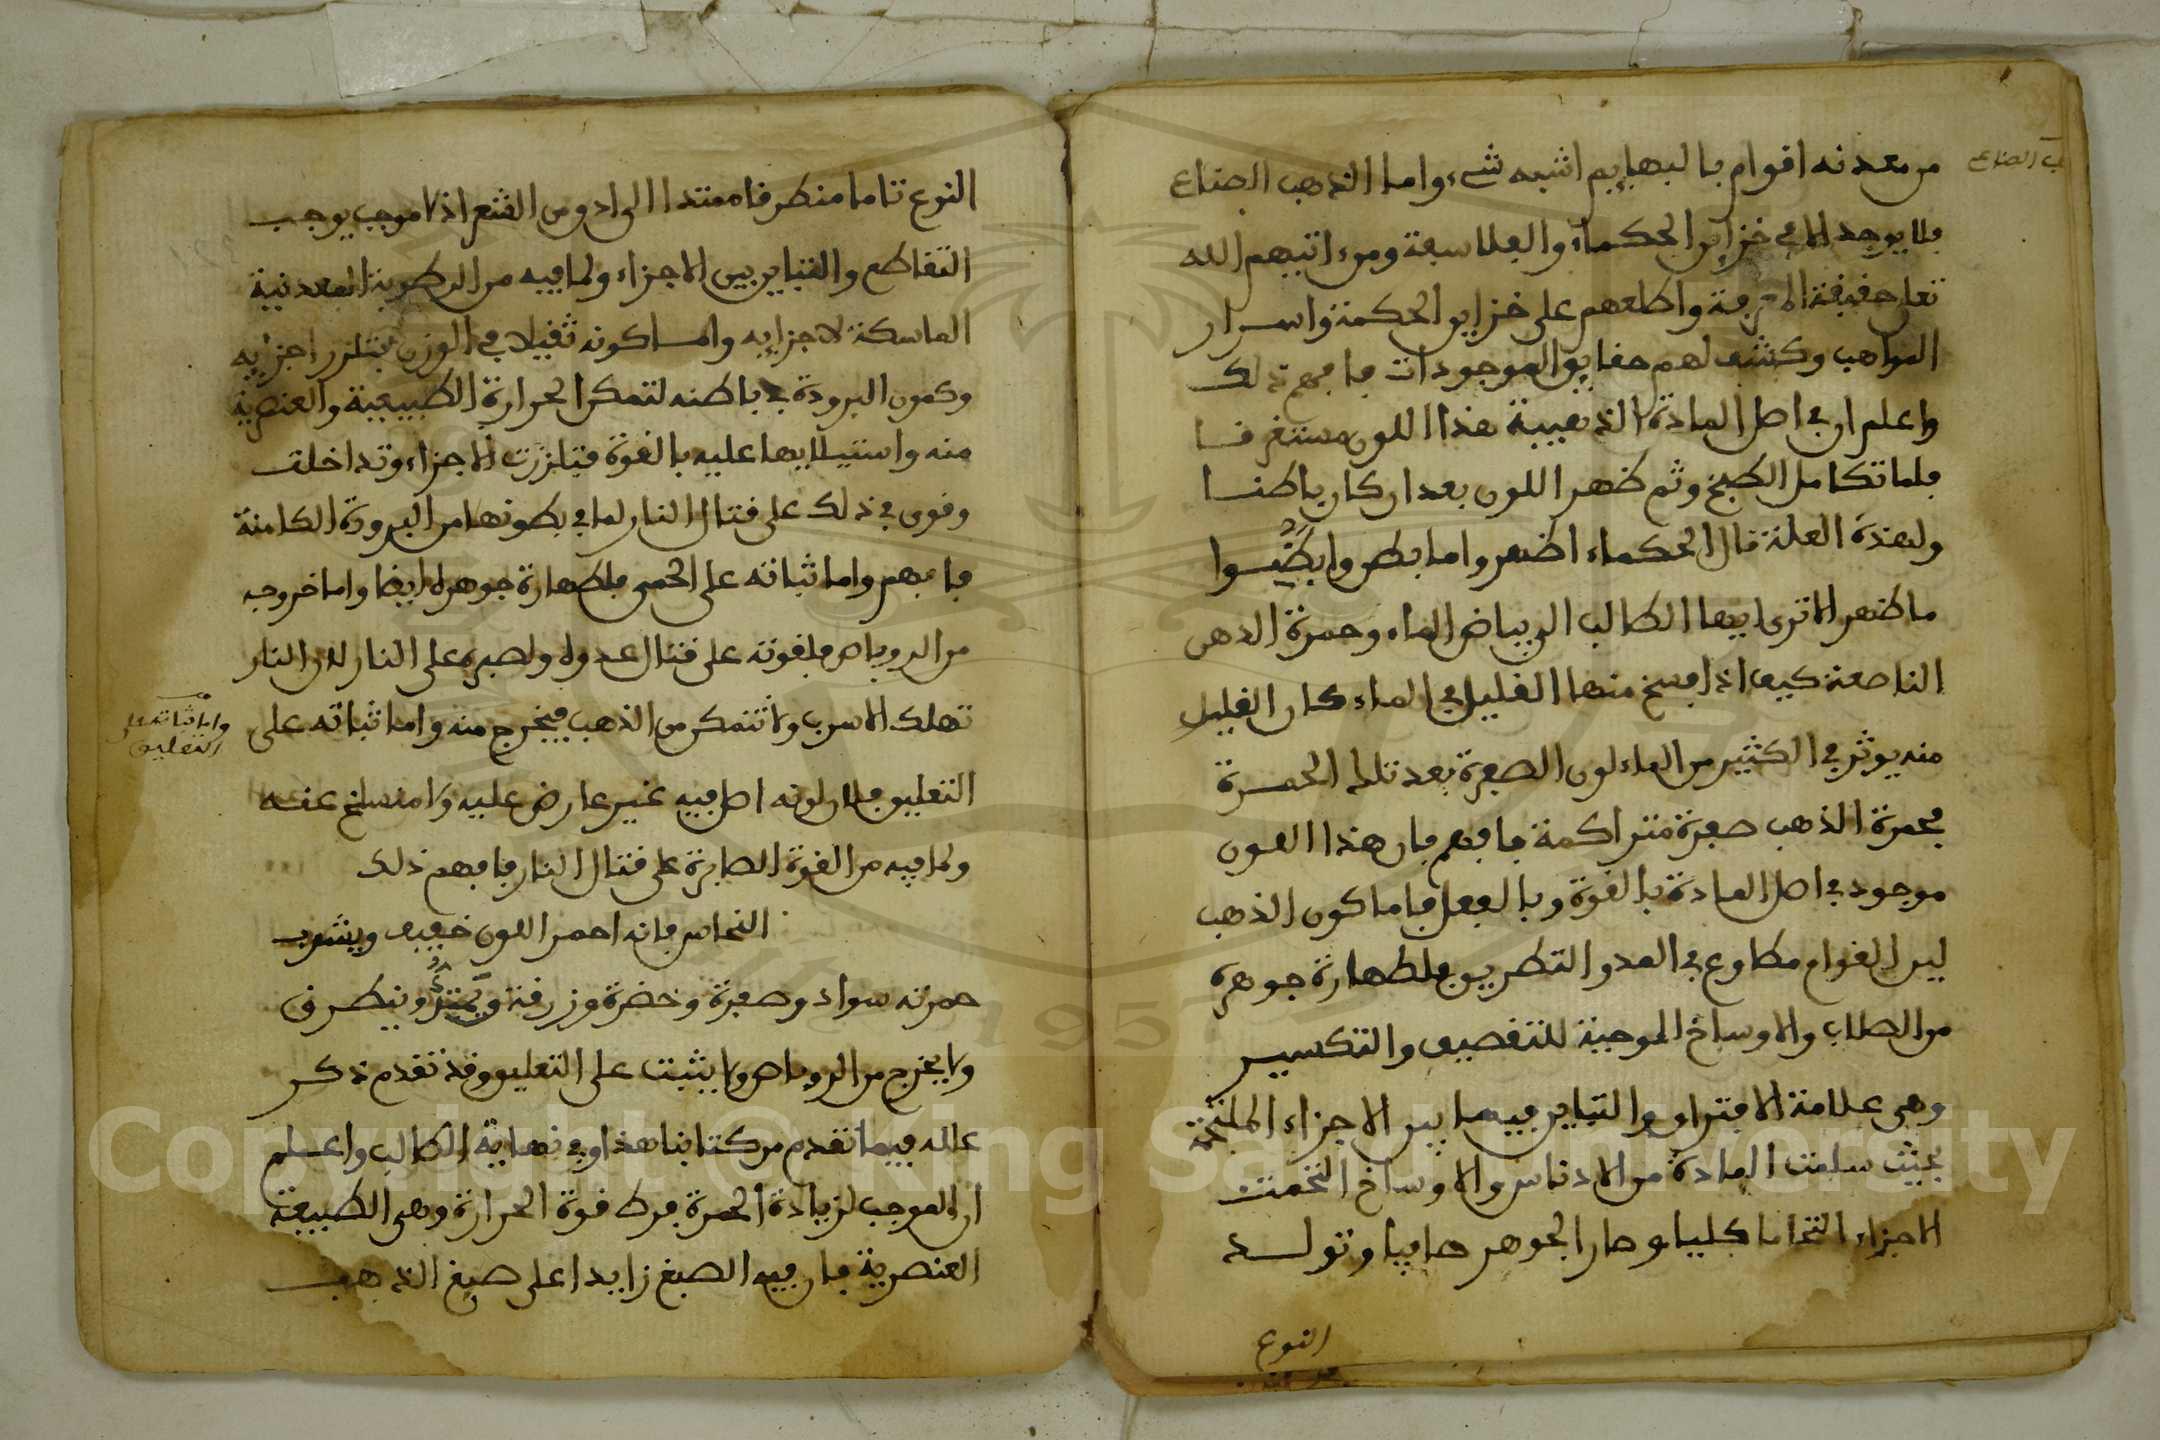 من معدنه افوام بالبهايم اشبه شيء واما الذهب الصناع
فلا يوجد الا في خزاين الحكماء والفلاسفة ومن اتيهم الله
تعلى حقيقة المعرفة واطلعهم على خزاين الحكمة واسرار
المواهب وكشف لهم حقايق الموجودات فافهم ذلك
واعلم ان في اصل المادة الذهبية هذا اللون مستغرقا
فلما تكامل الطبخ وثم ظهر اللون بعد ان كان باطنا
ولهذه العلة قال الحكماء اظهروا ما بطن وابطنوا
ما ظهر الا ترى ايها الطالب الى بياض الماء وحمرة الدهن
الناصعة كيف اذا فسخ منها القليل في الماء كان القليل
منه يوثر في الكثير من الماء لون الصفرة بعد تلك الحمرة
فحمرة الذهب صفرة متراكمة فافهم فان هذا اللون
موجود في اصل المادة بالقوة وبالفعل فاما كون الذهب
لين القوام مطاوع في المد والتطريق فلطهارة جوهره
من الصلاب والاوساخ الموجبة للتقصيف والتكسير
وهي علامة الافتراق والتباين فيما بين الاجزاء الملتحمة
بحيث سلمت المادة من الادناس والاوساخ التحمت
الاجزاء التحاما كليا وصار الجوهر صافيا وتولد
النوع
النوع تاما منطرقا ممتدا الى ادون القشع اذ لا موجب يوجب
التقاطع والتباين بين الاجزاء ولما فيه من الرطوبة المعدنية
الماسكة لاجزايه واما كونه ثقيلا في الوزن فبتلزز اجزايه
وكمون البرودة في باطنه لتمكن الحرارة الطبيعية والعنصرية
منه واستيلايها عليه بالقوة فتلززت الاجزاء وتداخلت
وقوى في ذلك على قتال النار لما في بطونها من البرودة الكامنة
فافهم واما ثباته على الحمى فلطهارة جوهره ايضا واما خروجه
من الروباص فلقوته على قتال عدوه ولصبره على النار لان النار
تهلك الاسرب ولا تتمكن من الذهب فيخرج منه واما ثباته على
واما ثباته على
التعليق
التعليق فلان لونه اصل فيه غير عارض عليه ولا منسلخ عنه
ولما فيه من القوة الصابرة على قتال النار فافهم ذلك
النحاس فانه احمر اللون خفيف ويشوب
حمرته سواد وصفرة وخضرة وزرقة ويمتد وينطرق
ولا يخرج من الروباص ولا يثبت على التعليق وقد تقدم ذكر
علله فيما تقدم من كتابنا هذا وفي نهاية الطالب واعلم
ان الموجب لزيادة الحمرة فرط قوة الحرارة وهي الطبيعة
العنصرية فان فيه الصبغ زايدا على صبغ الذهب
Copyright © King Saud University
1957